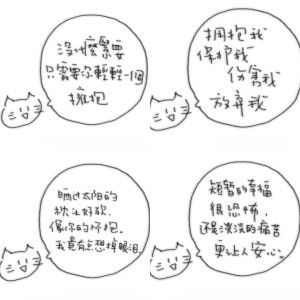 沒什麼緊要
只需要你輕輕一個
擁抱
拥抱我
保护我
伤害我
放弃我
晒过太阳的
枕头好软,
像你的怀抱。
我竟有点想掉眼泪。
短暂的幸福
很恐怖,
还是淡淡的痛苦
更让人安心。